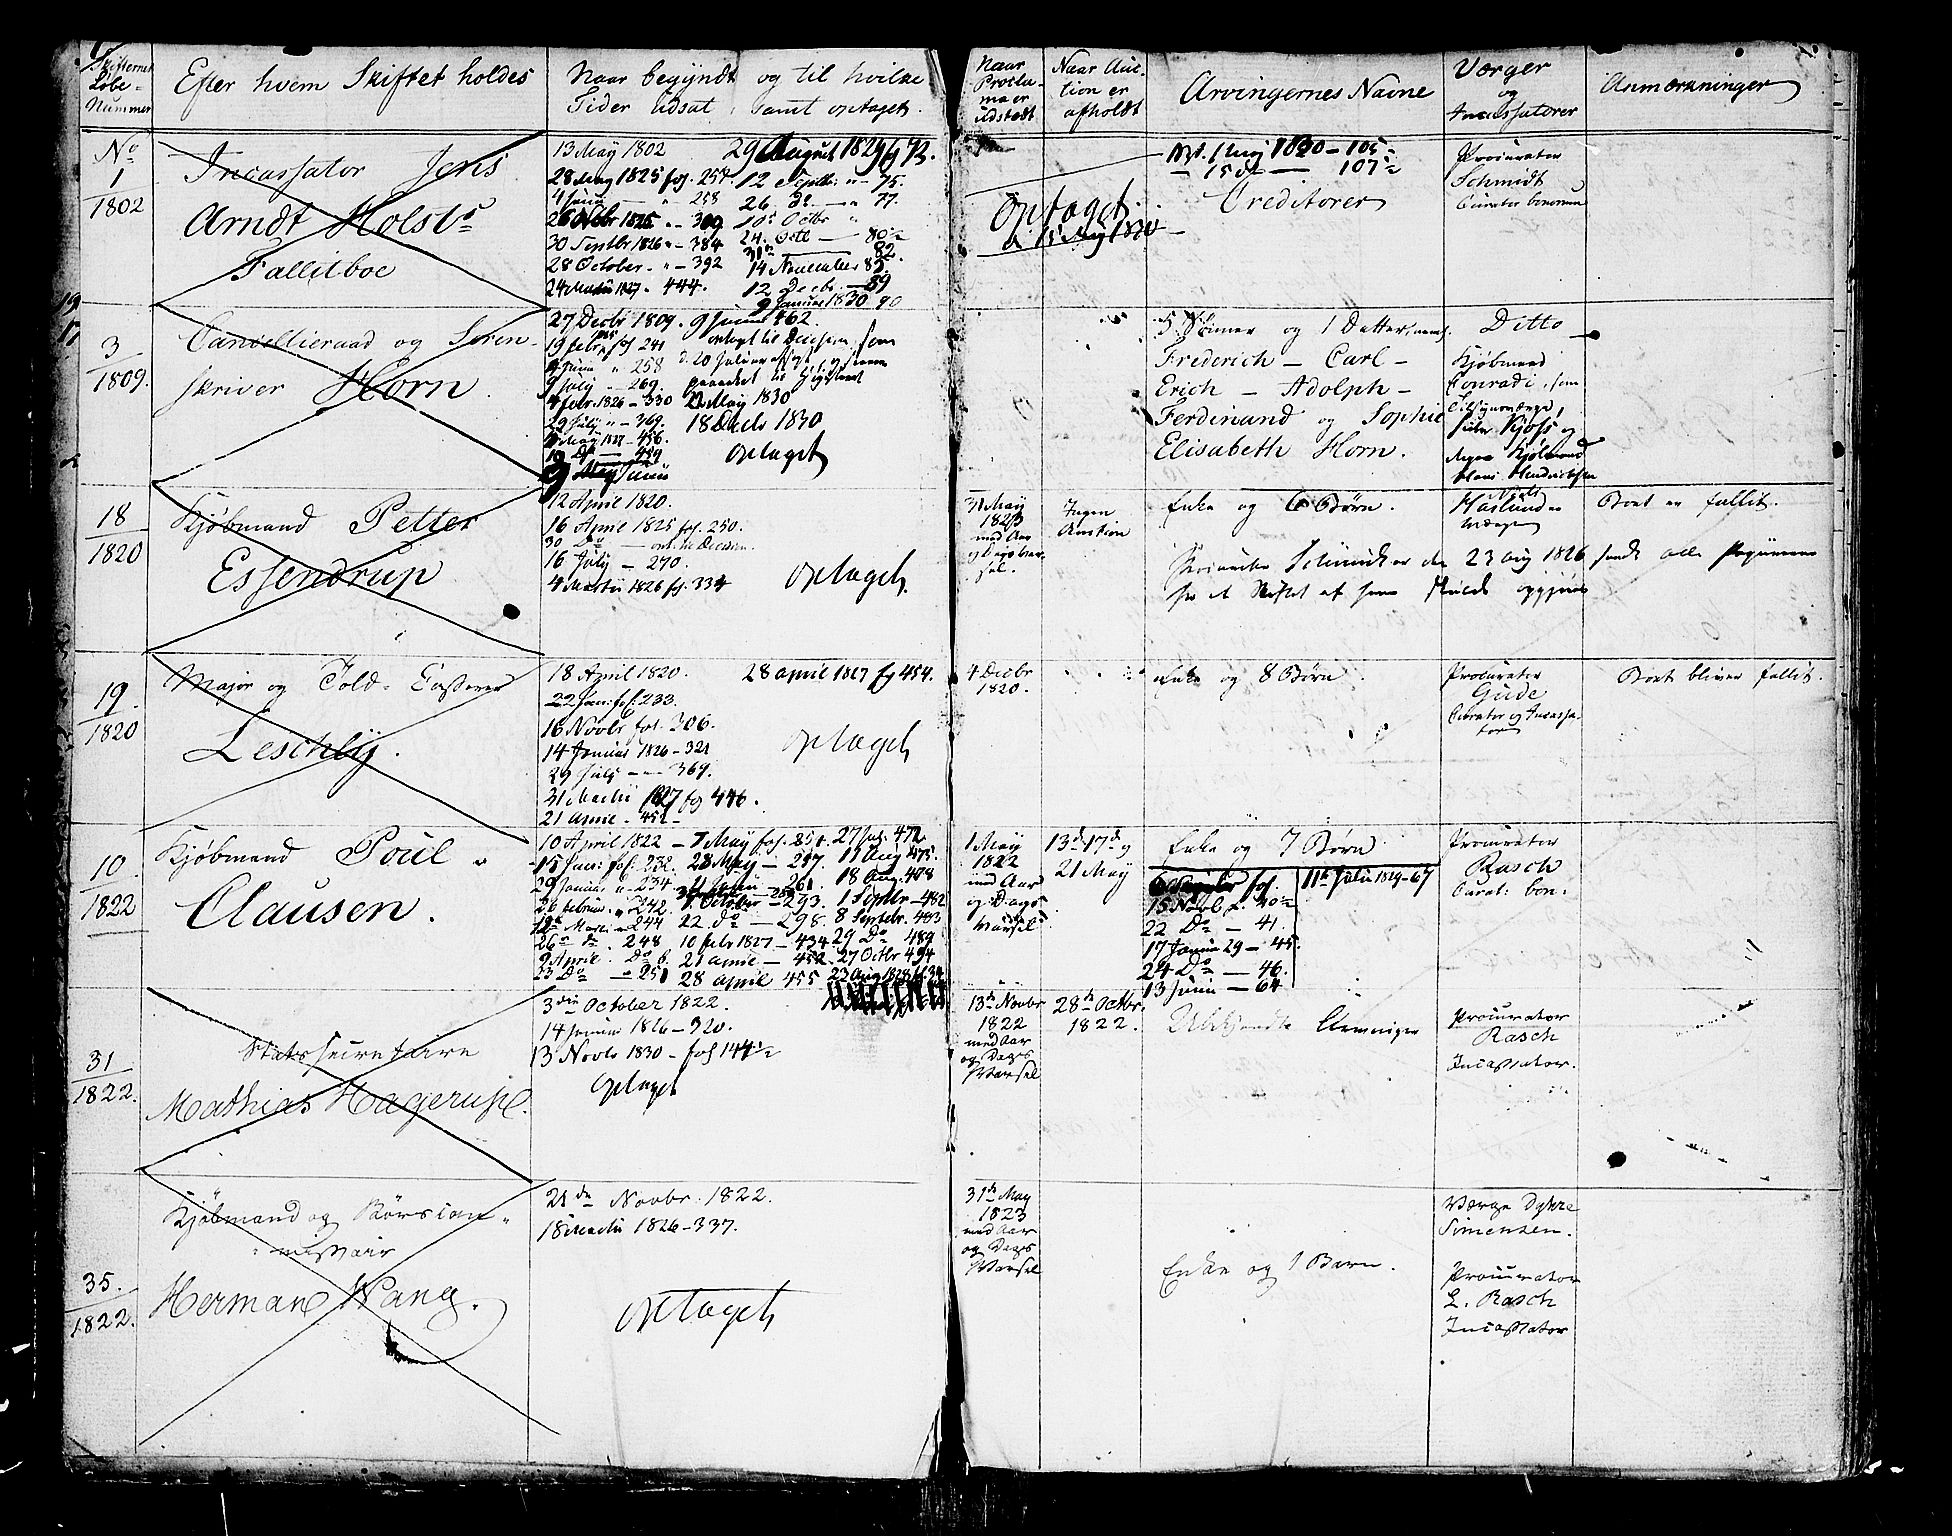 Skifternes
Løbe-
Nummer
Efter hvem Skiftet holdes
Naar begyndt og til hvilke
Tider Udsat, samt optaget.
Naar
Procla-
ma er
udstædt
Naar Auc-
tion er
afholdt
Arvingernes Navne
Værger
og
Incassatorer
Anmærkninger
No
1
1802
Incassator Jens
Arndt Holsts
Fallitboe
13 May 1802
28 May 1825 fol. 257.
4 Junii 258
26 Novbr 1825 - 309
30 Septbr 1826 - 384
28 October - 392
24 Martii 1827 - 444.
29 August 1829 fol 73.
12 Septbr - 75.
26 do - 77.
10 Octbr
24 Octb - 80
31 - 82
14 November 85.
12 Decbr - 89
9 Januar 1830 90
Optaget
15 May 1830
1 May 1830 - 105
15 do - 107
Creditorer
Procurator
Schmidt
Curator bonorum
3
1809.
Cancellieraad og Soren-
skriver Horn
27 Decbr 1809.
19 febr fol 241
4 Junii 258
9 July - 269.
4 febr. 1826 - 330
29 July - 369.
May 1827 - 456.
10 Do - 459
9 Junii
9 Junii 462.
22 May 1830
18 Decbr 1830
Optaget
5 Sønner og 1 Datter
Frederich - Carl -
Erich - Adolph -
Ferdinand og Sophie
Elisabeth Horn.
Ditto
Kjøbmand
Conradi, som
Tilsynsværge,
Kjøbmand
Hans Hendrichsen
18
1820
Kjøbmand Petter
Essendrup
12 April 1820.
16 April 1825 fol. 250.
30 Do
16 July - 270.
4 Martii 1826 fol. 334
Optaget.
31 May
1823
med Aar
og Dags Var-
sel.
Ingen
Auction
Enke og 6 Børn.
Niels
Haslund er
Værge
Boet er fallit.
den 23 aug 1826
19
1820
Major og Told-Casserer
Leschly.
18 April 1820.
22 Jan: fol. 233.
16 Novbr fol. 306.
14 Januar 1826 - 321
29 July - 369.
31 Martii 1827 fol 446.
21 April - 452 -
28 april 1827 fol 454.
Optaget
4 Decbr
1820.
Enke og 8 Børn
Procurator
Gude
Curator og Incassa-
tor
Boet bliver fallit.
10
1822
Kjøbmand Poul
Clausen.
10 April 1822 - 7 May fol. 251. 27 Jul. 472.
15 Jan: fol. 232. 28 May - 257. 11 Aug 475.
29 Januar - 234 11 Junii - 261 18 Aug. 478
26 februar - 242. 1 October - 293. 1 Septbr - 482
12 Martii - 244 22 do - 298. 8 Septbr. 483
26 do - 248 10 febr 1827 - 434 29 Do 489
9 April Do 21 april - 452. 27 Octbr 494
23 Do - 251 28 april 455 23 Aug 1828 fol. 34
1 May
1822
med Aar
og Dags
Varsel
13de 17de og
21 May
Enke og 7 Børn
15 Novb
22 Do - 41.
17 Januar 29 - 45.
24 Do - 46.
13 Junii - 64
11te Julii 1829 - 67
Procurator
Rasch
Curat: bon:
31
1822.
Statssecretaire
Mathias Hagerup.
3die October 1822.
14 Januar 1826 - 320.
13 Novbr 1830 - fol 144
Optaget
13de Novbr
1822
med Aar
og Dags
Warsel
28de Octbr.
1822.
Ubekjendte Arvinger
Procurator
Rasch
Incassator.
35.
1822.
Kjøbmand og Børscom-
missair
Herman Wang.
21de Novbr. 1822.
18 Martii 1826 - 337.
Optaget
31te May
1823
med Aar
og Dags
Warsel
Enke og 1 Barn.
Værge Dykre
Simensen.
Procurator
L. Rasch
Incassator